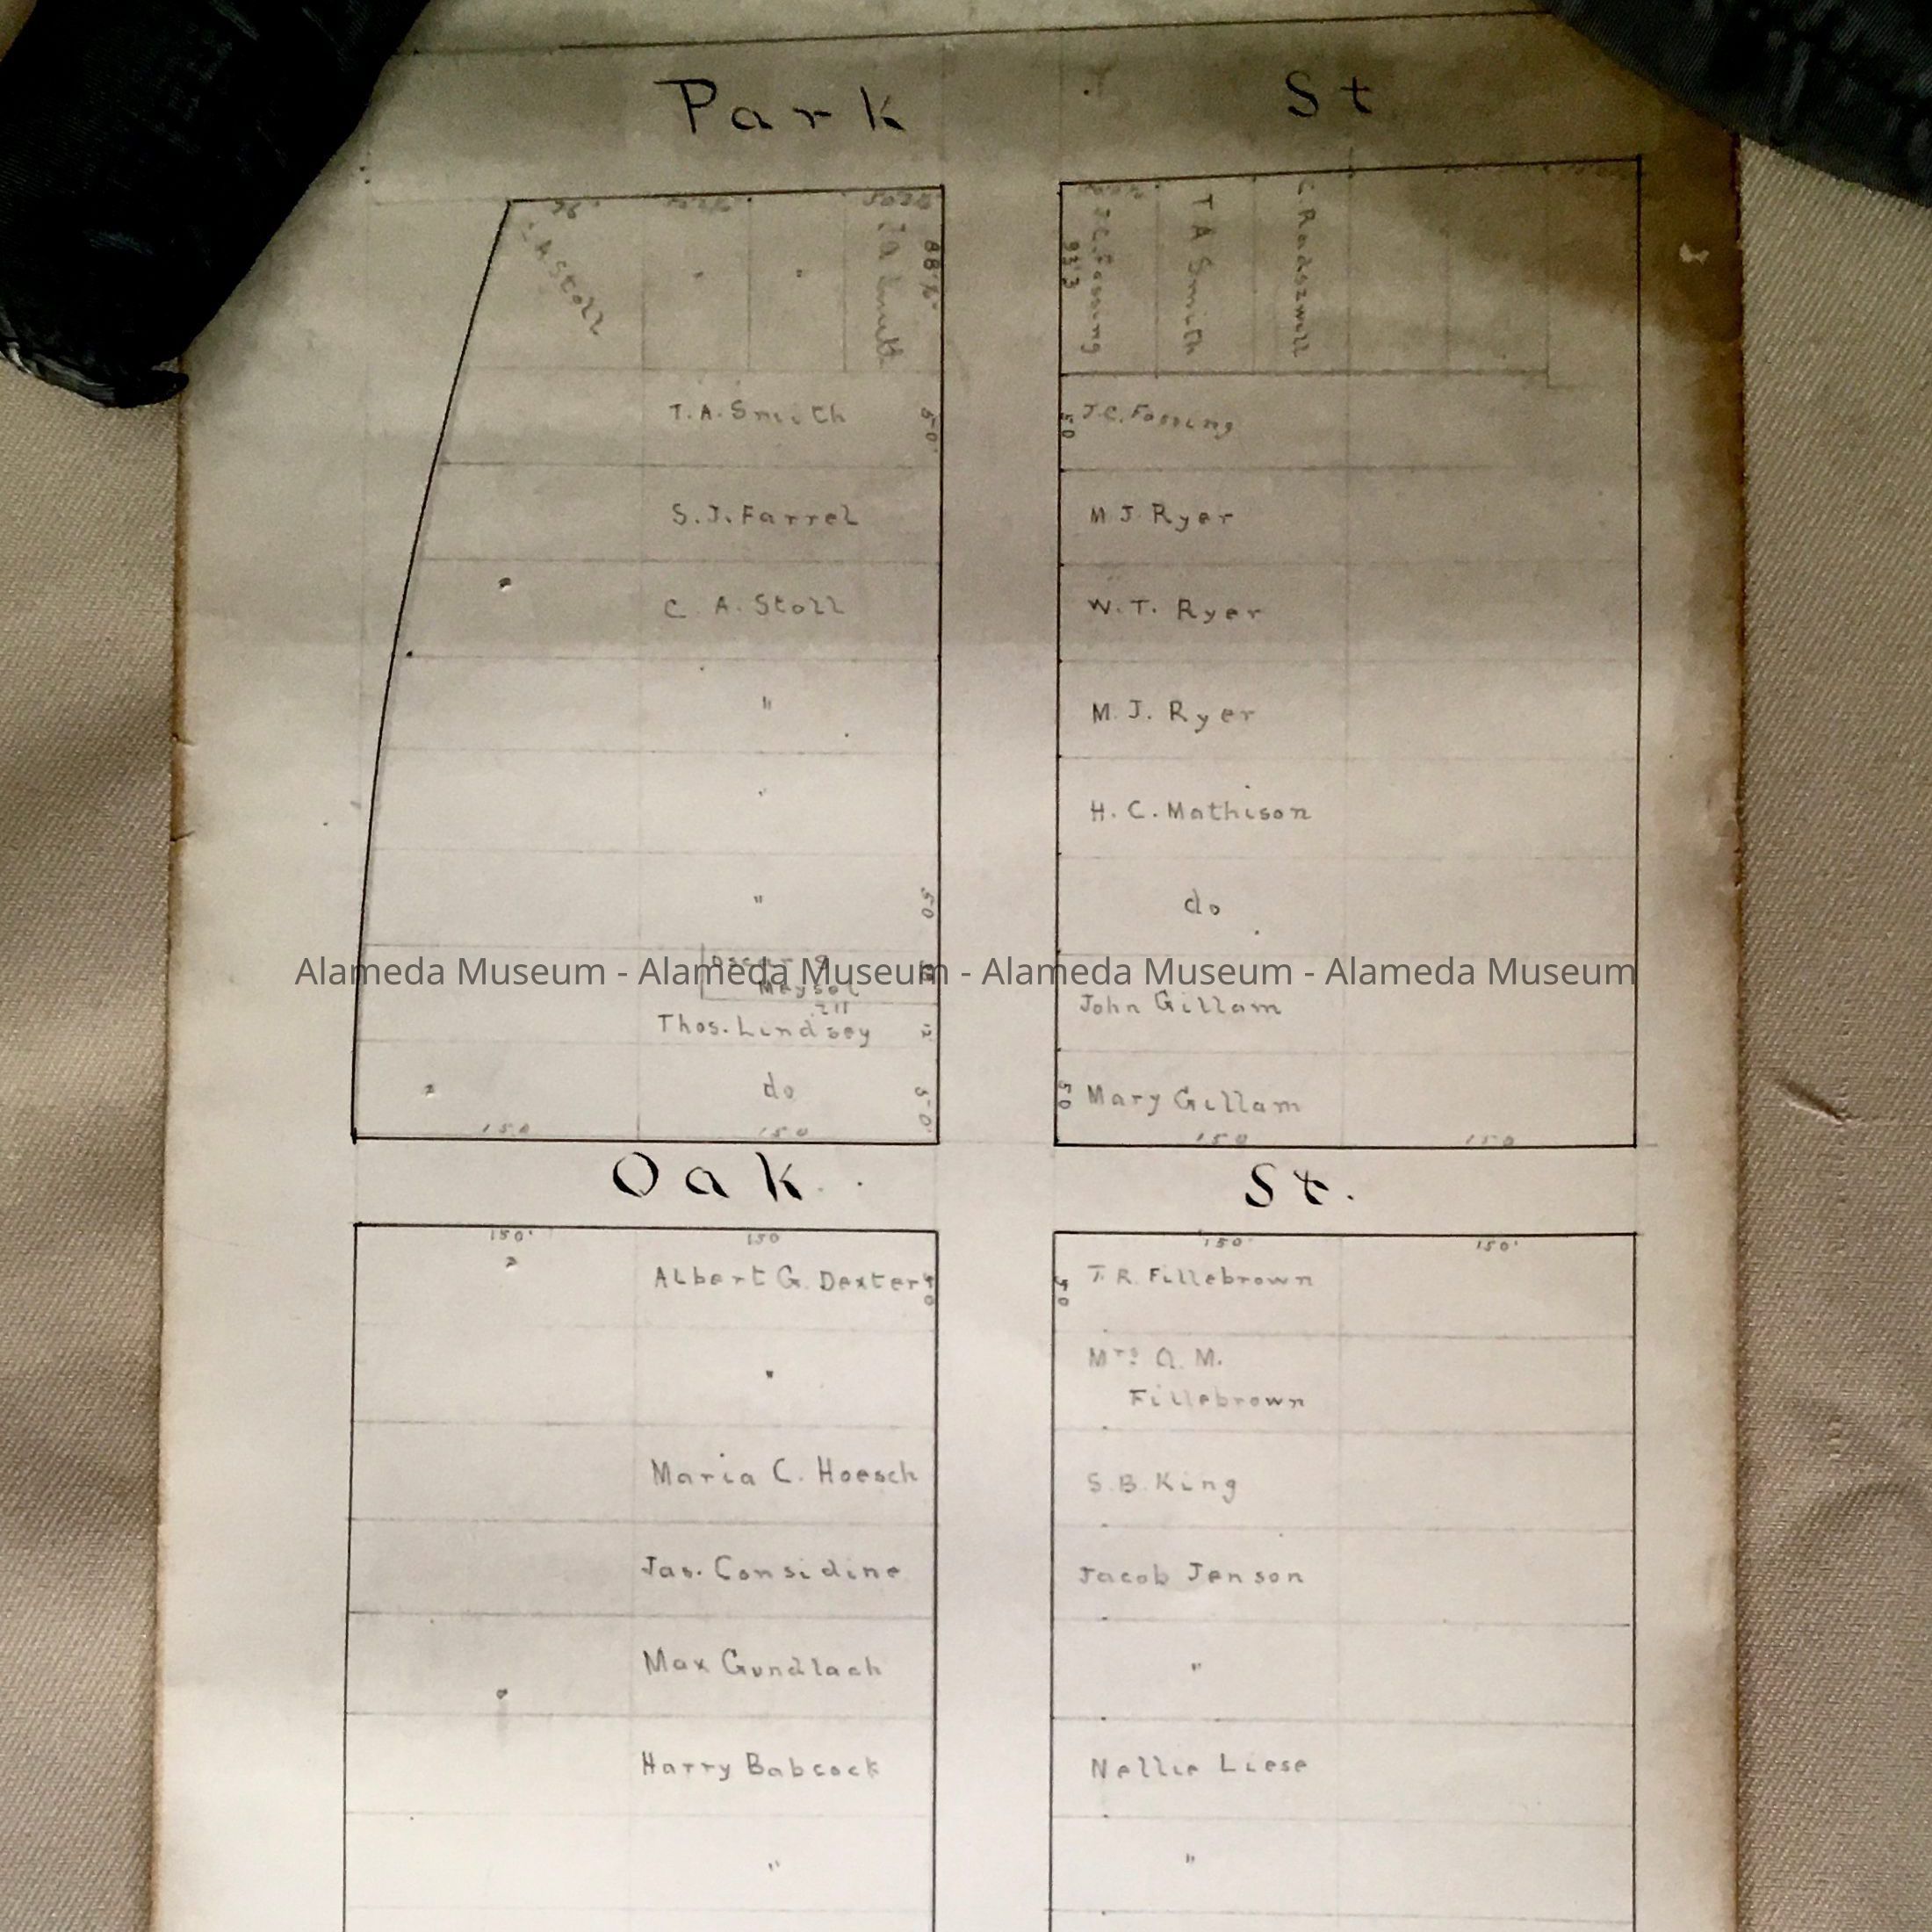 Park St
96'
88'6"
C A Stoll
T A Smith
J.C. Fossing
T A Smith
93'3
T. A. Smith
50'
J.C. Fossing
50
S. J. Farrel
M J Ryer
C. A. Stoll
W. T. Ryer
"
M. J. Ryer
"
H. C. Mathison
"
50
do
Alameda Museum - Alameda Museum - Alameda Museum - Alameda Museum
John Gillam
Thos. Lindsey
do
50'
50
Mary Gillam
150
150
150
150
Oak St.
150'
150
150'
150'
Albert G. Dexter
50
50
T. R. Fillebrown
"
Mrs A. M.
Fillebrown
Maria C. Hoesch
S. B. King
Jas. Considine
Jacob Jenson
Max Gundlach
"
Harry Babcock
Nellie Liese
"
"